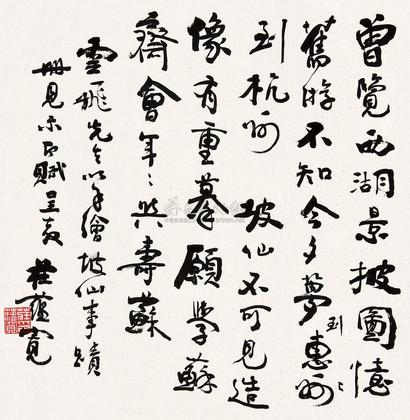 曾覽西湖景披圖憶
舊游不知今夕夢到惠州
到杭州 坡仙不可見造
像有重摹願學蘇
齋會年年與壽蘇
雲飛先生以手繪坡仙事蹟
冊見示即賦呈教 莊蘊寬